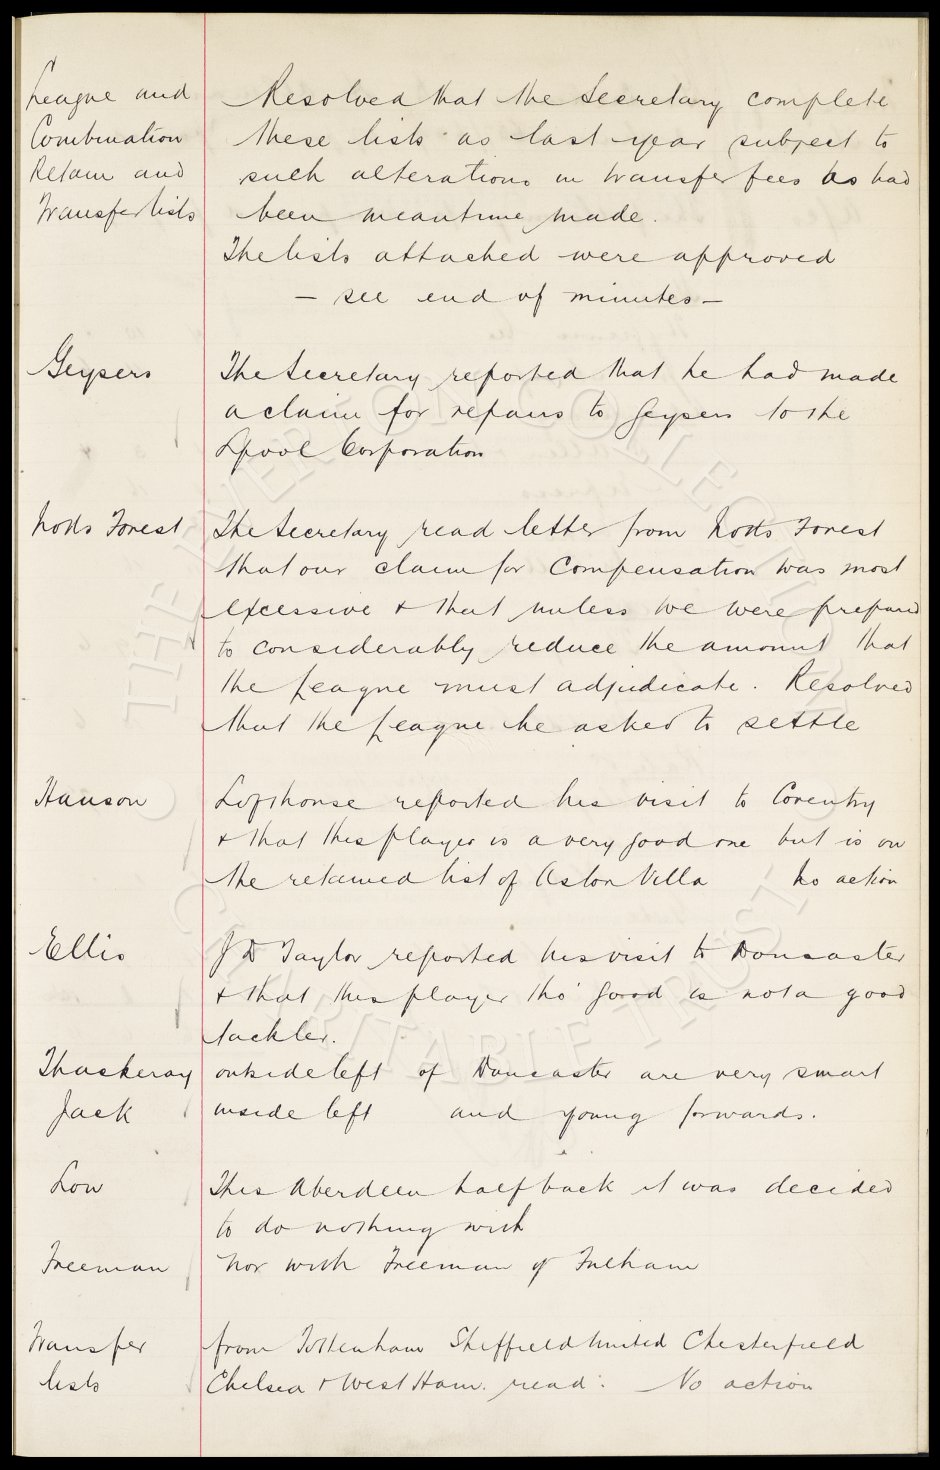 League and
Combination
Retain and
Transfer lists
Resolved that the Secretary complete
these lists as last year subject to
such alterations in transfer fees as had
been meantime made.
The lists attached were approved
— see end of minutes —
Geysers
The Secretary reported that he had made
a claim for repairs to Geysers to the
Lpool Corporation
Notts Forest
The Secretary read letter from Notts Forest
that our claim for Compensation was most
excessive & that unless we were prepared
to considerably reduce the amount that
the League must adjudicate. Resolved
that the League be asked to settle
Hanson
Lofthouse reported his visit to Coventry
& that this player is a very good one but is on
the retained list of Aston Villa No action
Ellis
J D Taylor reported his visit to Doncaster
& that this player tho' good is not a good
tackler.
Thackeray outside left of Doncaster are very smart
Jack inside left and young forwards.
Low
This Aberdeen half back it was decided
to do nothing with
Freeman nor with Freeman of Fulham
Transfer
lists
from Tottenham Sheffield United Chesterfield
Chelsea & West Ham. read. No action
THE EVERTON COLLECTION
CHARITABLE TRUST